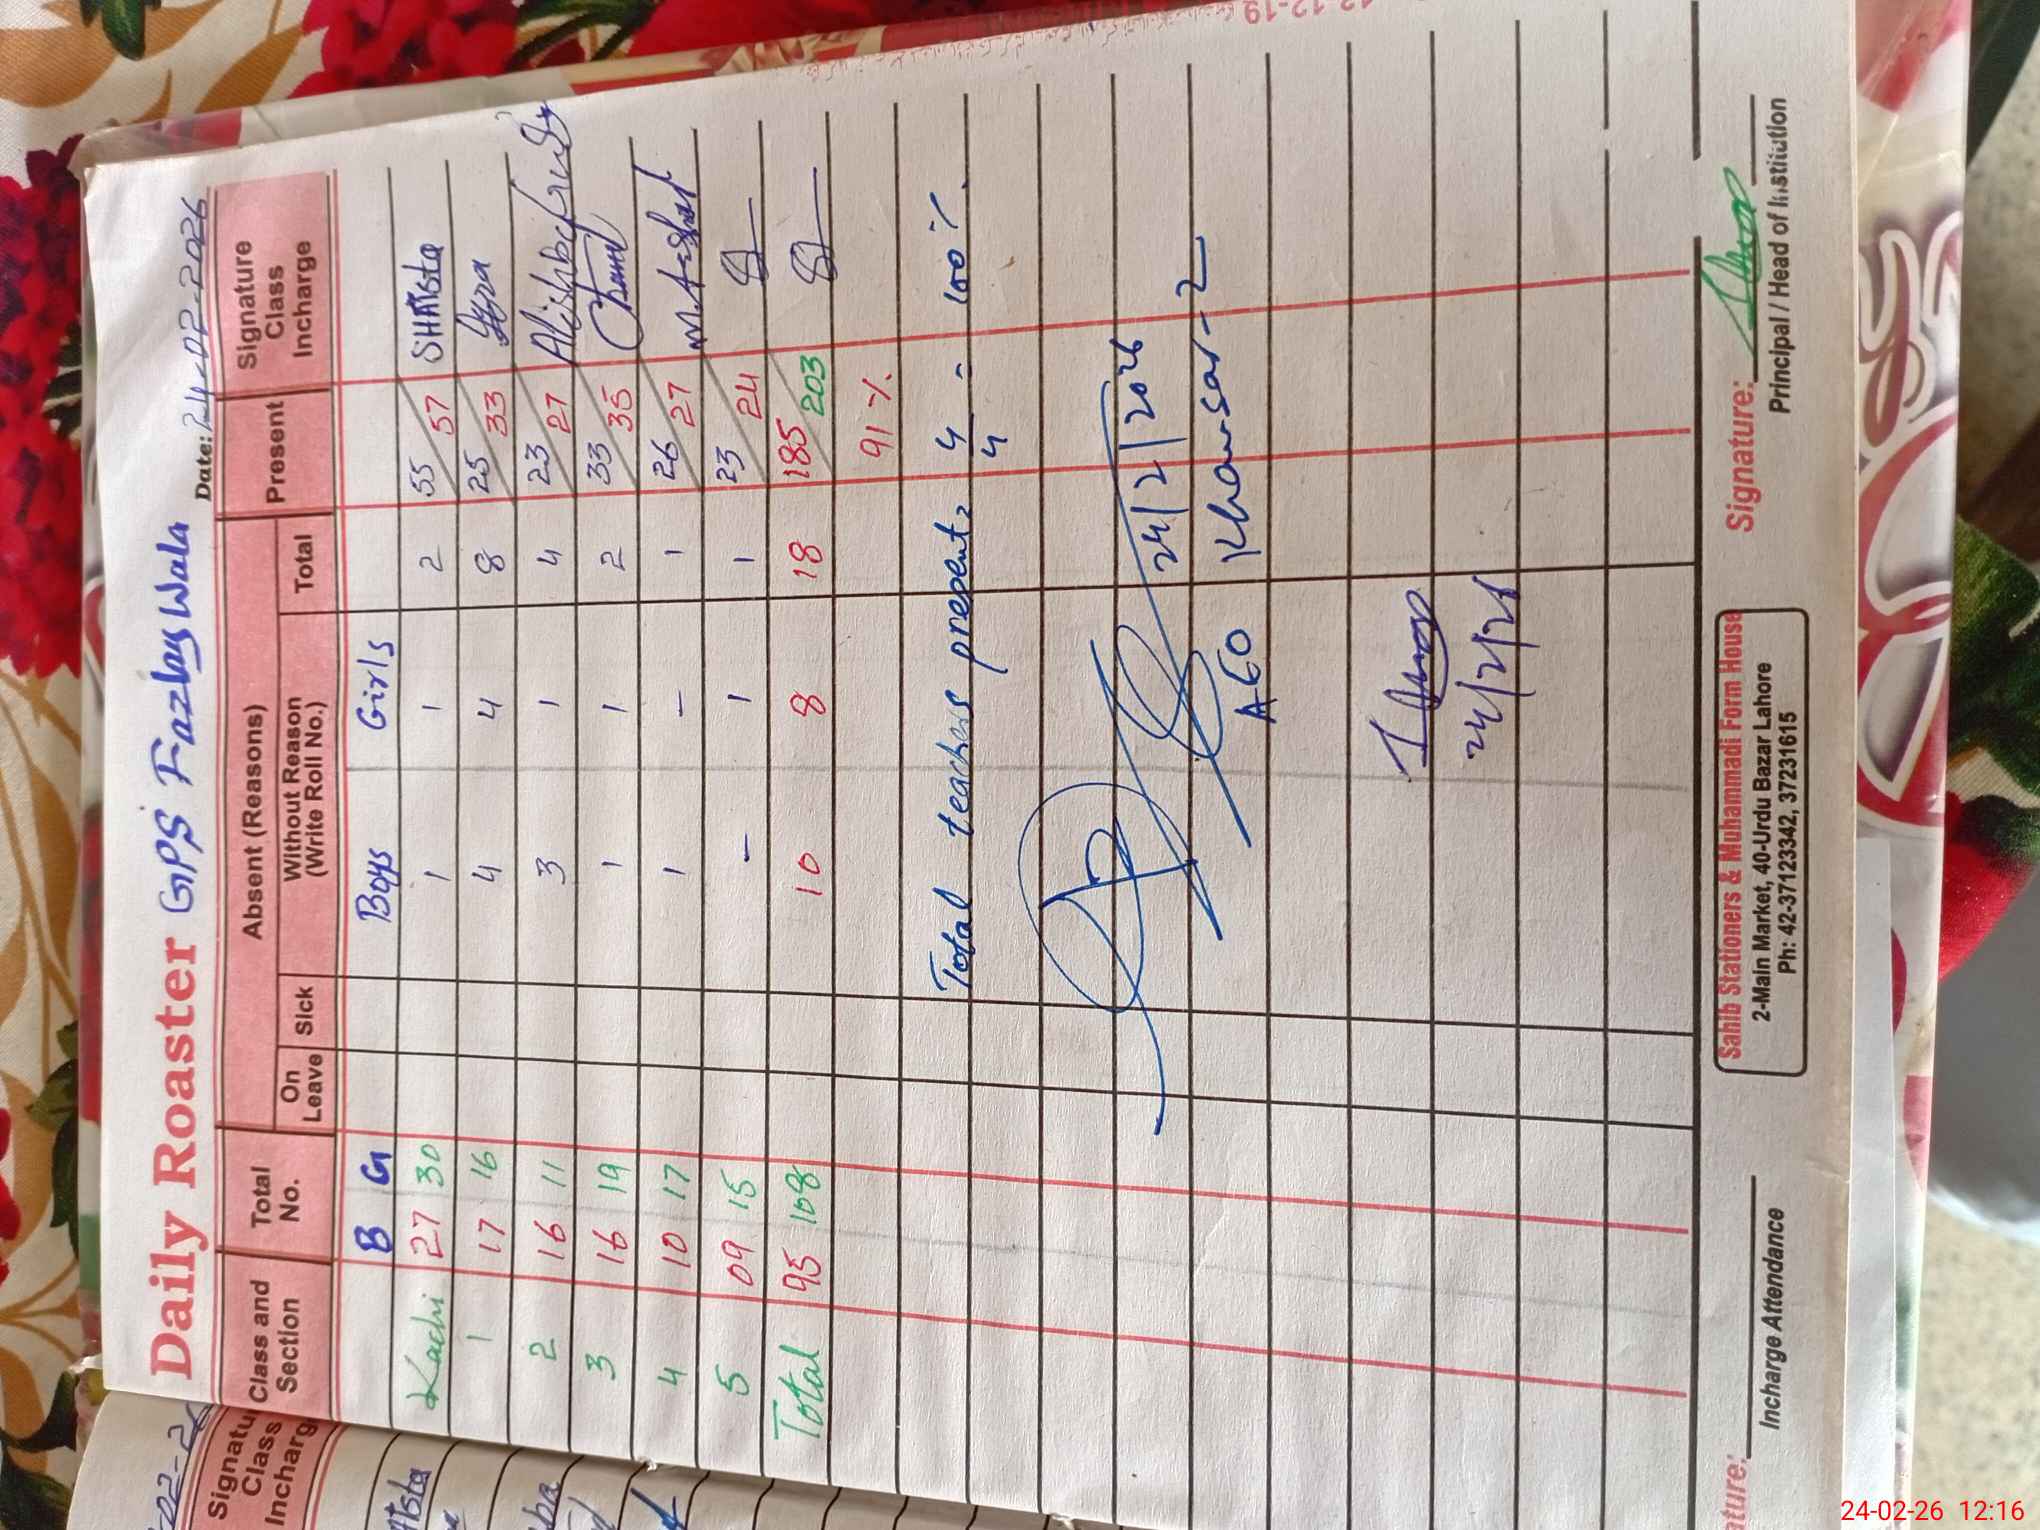 Daily Roaster GPS Fazlay Wala
Date: 24-02-2026
Class and Section Total No. Absent (Reasons) Present Signature Class Incharge
On Leave Sick Without Reason (Write Roll No.) Total
B G Boys Girls
Kachi 27 30 1 1 2 55/57 SHAISta
1 17 16 4 4 8 25/33
2 16 11 3 1 4 23/27
3 16 19 1 1 2 33/35
4 10 17 1 - 1 26/27
5 09 15 - 1 1 23/24
Total 95 108 10 8 18 185/203
91 %
Total teachers present = 4/4 = 100 %
24/2/2026
Khansar-2
24/2/26
Signature:
Incharge Attendance
Sahib Stationers & Muhammadi Form House
2-Main Market, 40-Urdu Bazar Lahore
Ph: 42-37123342, 37231615
Signature:
Principal / Head of Institution
Signature Class Incharge
24-02-26 12:16